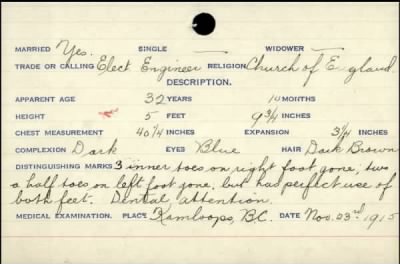 MARRIED Yes. SINGLE — WIDOWER —
TRADE OR CALLING Elect. Engineer RELIGION Church of England
DESCRIPTION.
APPARENT AGE 32 YEARS 10 MONTHS
HEIGHT 5 FEET 9 3/4 INCHES
CHEST MEASUREMENT 40 1/4 INCHES EXPANSION 3 1/4 INCHES
COMPLEXION Dark EYES Blue HAIR Dark Brown
DISTINGUISHING MARKS 3 inner toes on right foot gone, two
& half toes on left foot gone, but had perfect use of
both feet. Dental attention.
MEDICAL EXAMINATION. PLACE Kamloops, B.C. DATE Nov. 23rd 1915